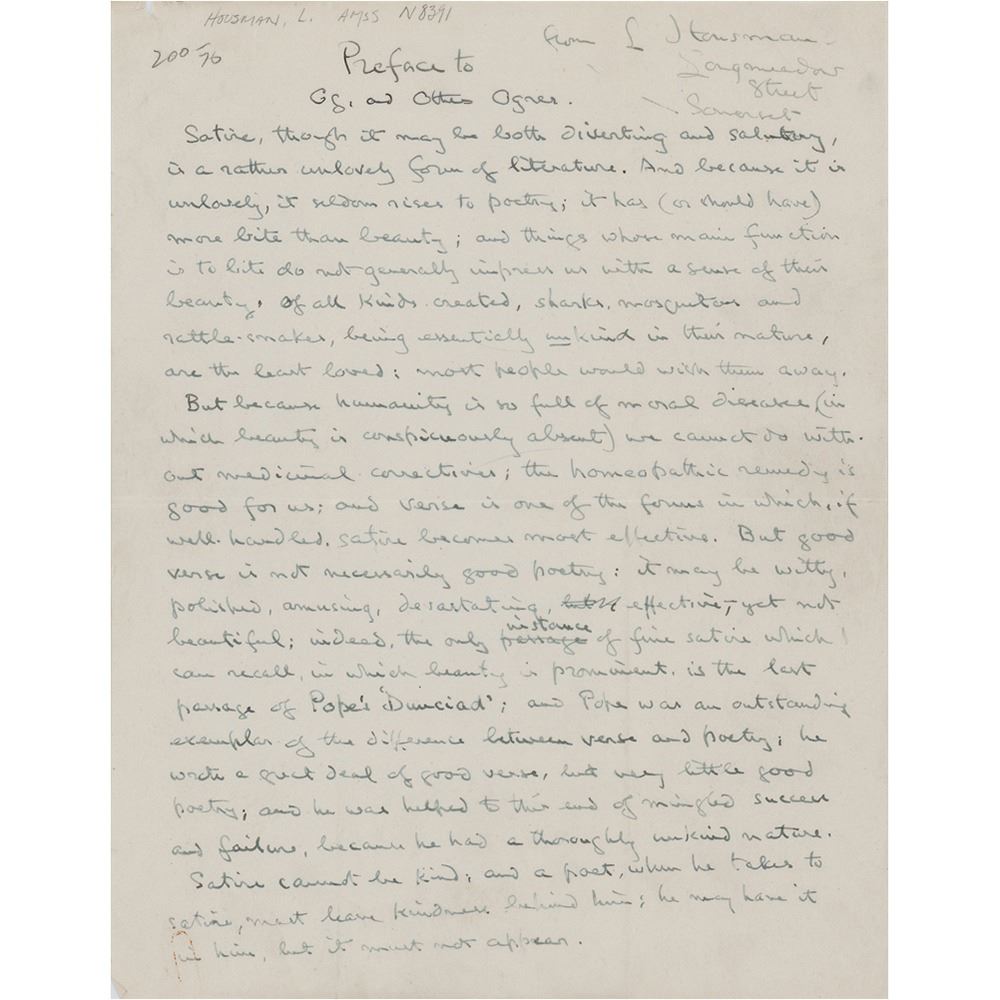 HOUSMAN, L. AMSS N8391
200/76
from L Housman
Longmeadow
Street
Somerset
Preface to
Og, and Other Ogres.
Satire, though it may be both diverting and salutary,
is a rather unlovely form of literature. And because it is
unlovely, it seldom rises to poetry; it has (or should have)
more bite than beauty; and things whose main function
is to bite do not generally impress us with a sense of their
beauty. Of all kinds created, sharks, mosquitoes and
rattle-snakes, being essentially unkind in their nature,
are the least loved: most people would wish them away.
But because humanity is so full of moral diseases (in
which beauty is conspicuously absent) we cannot do with-
out medicinal correctives; the homeopathic remedy is
good for us; and verse is one of the forms in which, if
well-handled, satire becomes most effective. But good
verse is not necessarily good poetry: it may be witty,
polished, amusing, devastating, effective,—yet not
instance
beautiful; indeed, the only passage of fine satire which I
can recall, in which beauty is prominent, is the last
passage of Pope's 'Dunciad'; and Pope was an outstanding
exemplar of the difference between verse and poetry; he
wrote a great deal of good verse, but very little good
poetry; and he was helped to this end of mingled success
and failure, because he had a thoroughly unkind nature.
Satire cannot be kind; and a poet, when he takes to
satire, must leave kindness behind him; he may have it
in him, but it must not appear.